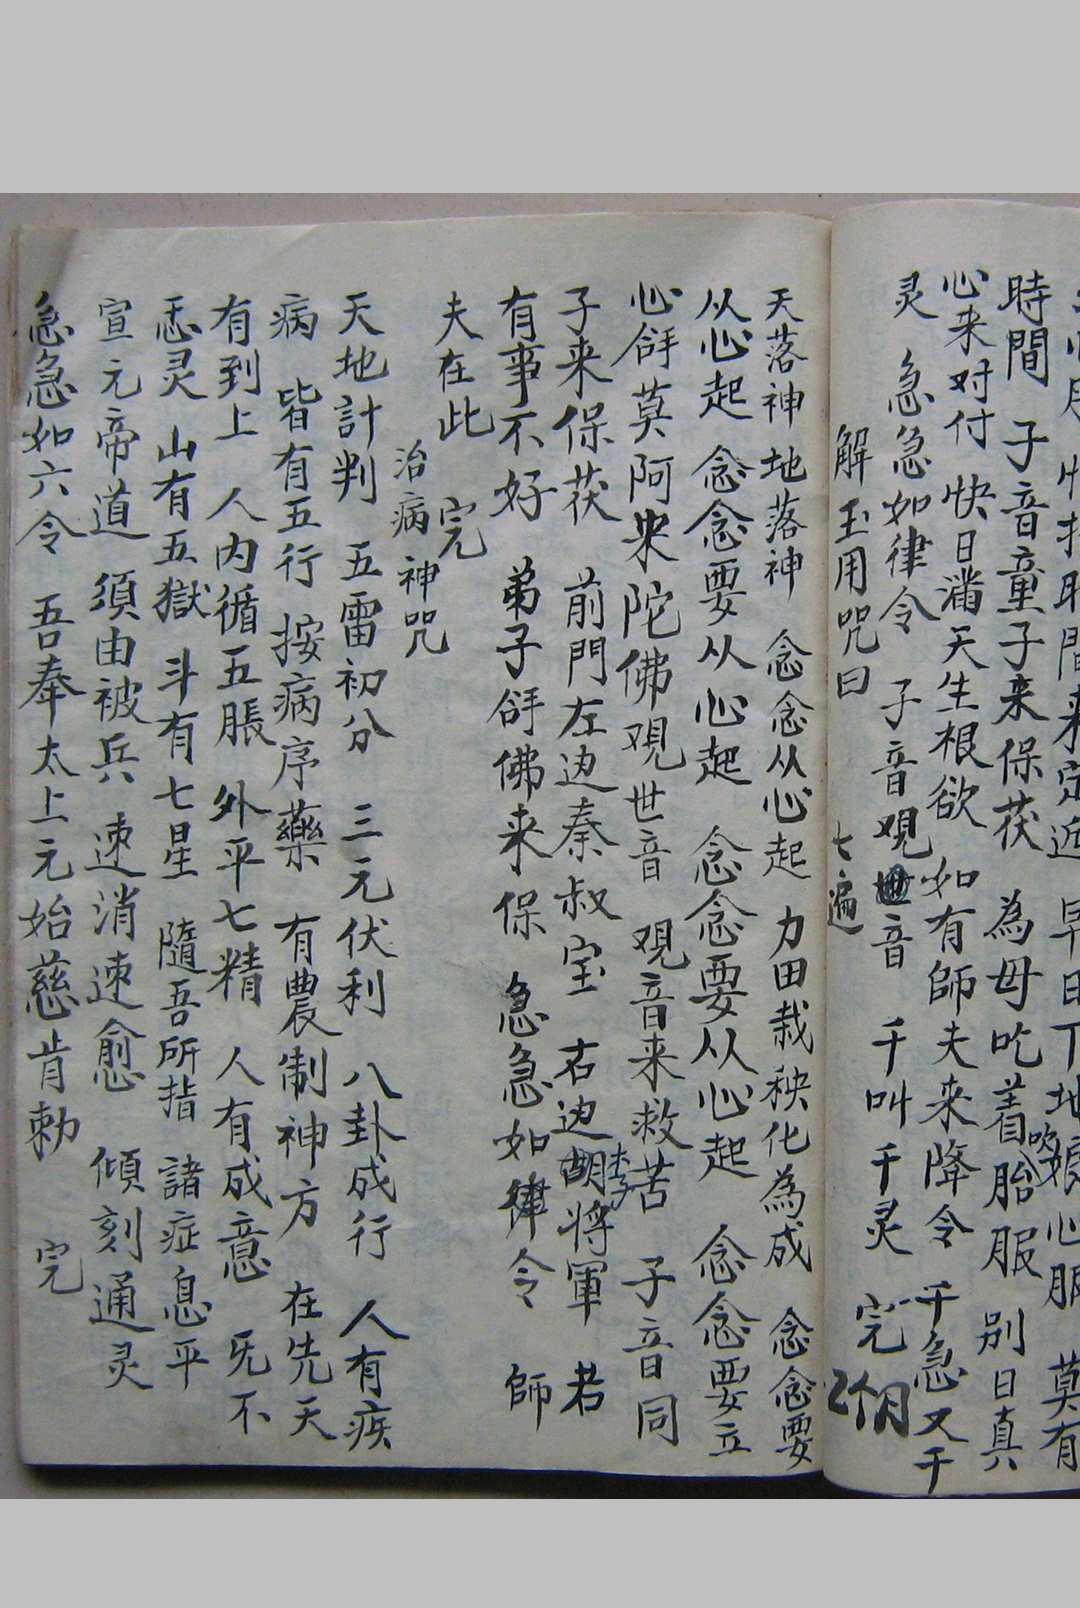 時間 子音童子来保茯 為母吃着胎服 别日真
心来对付 快日潘天生根欲 如有師夫来降令 千急又千
灵 急急如律令 子音观世音 千叫千灵 完
解玉用咒曰 七遍
天落神地落神 念念从心起 力田栽秧化為成 念念要
从心起 念念要从心起 念念要从心起 念念要立
心 莫阿来陀佛观世音 观音来救苦 子音同
子来保茯 前門左边秦叔宝 右边胡将軍 若
有事不好 弟子 佛来保 急急如律令 師
夫在此 完
治病神咒
天地計判 五雷初分 三元伏利 八卦成行 人有疾
病 皆有五行 按病序藥 有農制神方 在先天
有到上 人内循五脹 外平七精 人有成意 旡不
恙灵 山有五獄 斗有七星 隨吾所指 諸症息平
宣元帝道 須由被兵 速消速愈 傾刻通灵
急急如六令 吾奉太上元始慈肯勅 完